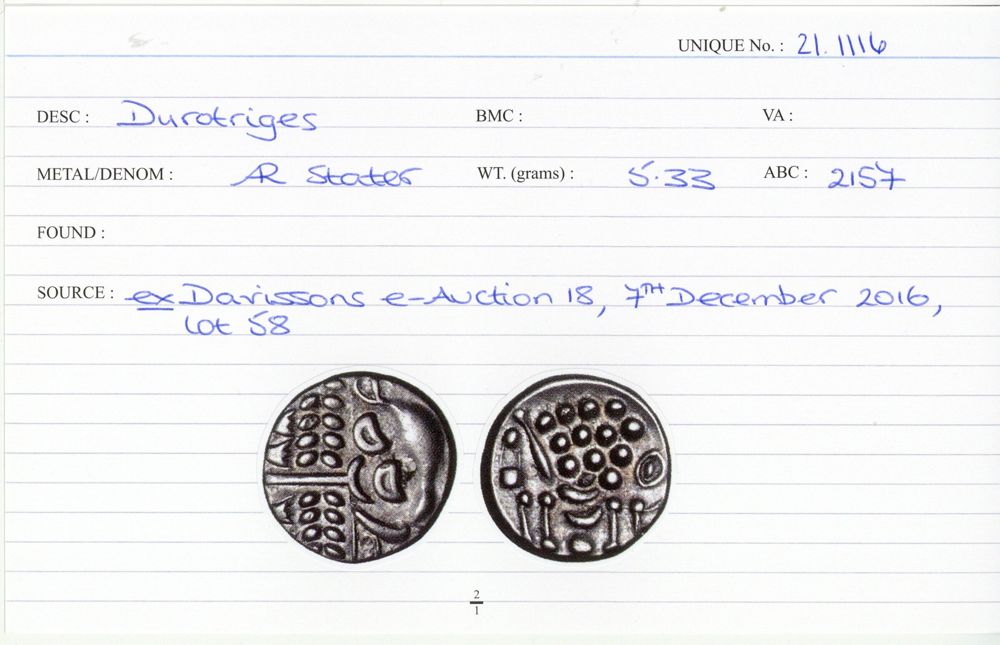 UNIQUE No. : 21.1116
DESC : Durotriges BMC : VA :
METAL/DENOM : AR Stater WT. (grams) : 5.33 ABC : 2157
FOUND :
SOURCE : ex Davissons e-Auction 18, 7TH December 2016,
Lot 58
2
1